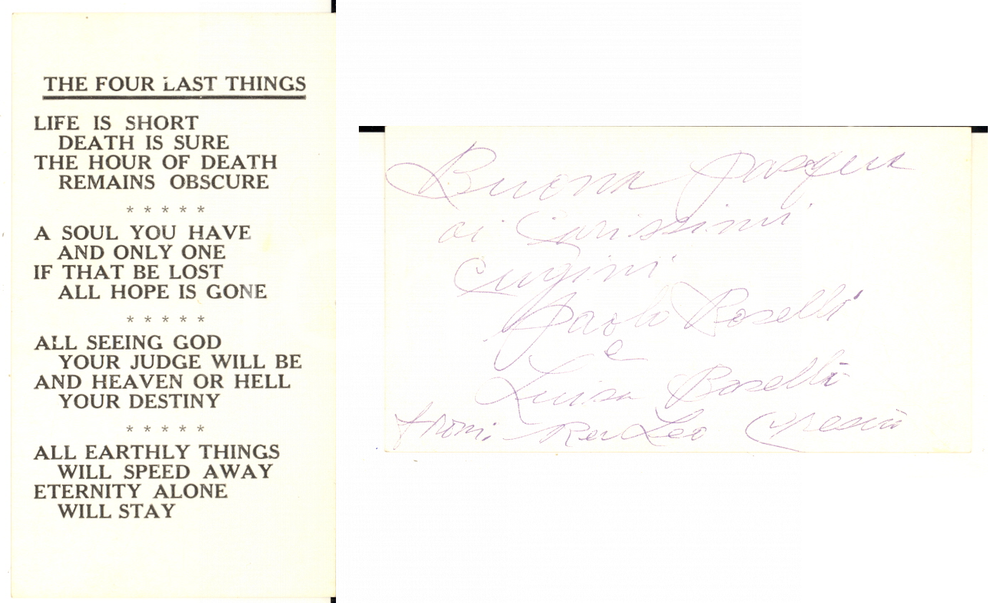 THE FOUR LAST THINGS
LIFE IS SHORT
DEATH IS SURE
THE HOUR OF DEATH
REMAINS OBSCURE
* * * * *
A SOUL YOU HAVE
AND ONLY ONE
IF THAT BE LOST
ALL HOPE IS GONE
* * * * *
ALL SEEING GOD
YOUR JUDGE WILL BE
AND HEAVEN OR HELL
YOUR DESTINY
* * * * *
ALL EARTHLY THINGS
WILL SPEED AWAY
ETERNITY ALONE
WILL STAY
Buona Pasqua
ai Carissimi
Cugini
Paolo Boselli
e
Luisa Boselli
from: Rev Leo